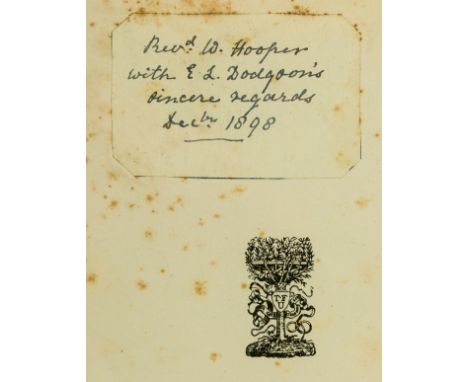 Revd W. Hooper
with E L Dodgson's
sincere regards
Decbr 1898